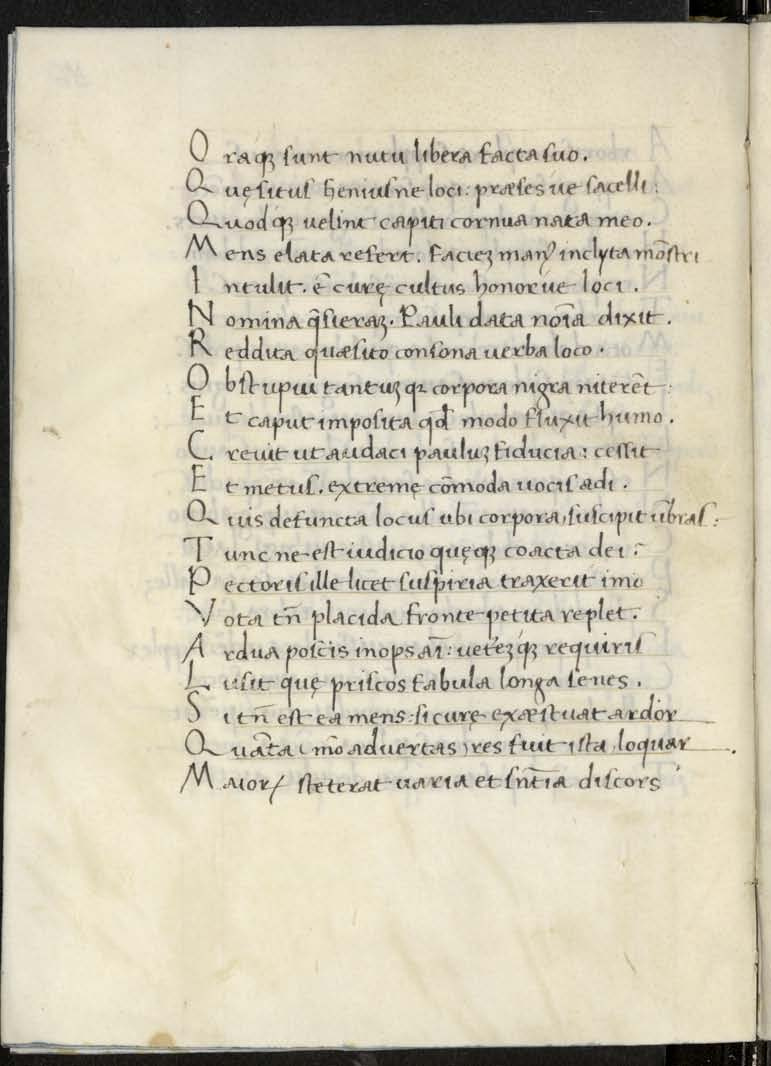 O raqꝫ sunt nutu libera facta suo.
Q uęsitus heniusne loci: præses ue sacelli:
Q uodqꝫ uelint capiti cornua nata meo.
M ens elata refert. faciez manꝰ inclyta mo̅stri
I ntulit. e̅ curę cultus honorue loci.
N omina q̅sieraz. Pauli data no̅ia dixit.
R eddita quæsito consona uerba loco.
O bstupui tantuꝫ qꝫ corpora nigra nitere̅t:
E t caput imposita qđ modo fluxit humo.
C reuit ut audaci pauluꝫ fiducia: cessit
E t metus. extremę co̅moda uocis adi.
Q uis defuncta locus ubi corpora, suscipit u̅bras:
T unc ne est iudicio quęqꝫ coacta dei:
P ectoris ille licet suspiria traxerit imo
V ota tn̅ placida fronte petita replet.
A rdua poscis inops ai̅: ueteꝫqꝫ requiris
L usit quę priscos fabula longa senes.
S i tn̅ est ea mens: si curę exæstuat ardor
Q ua̅ta (mo̅ aduertas) res fuit ista, loquar.
M aioꝝ steterat uaria et sn̅tia discors